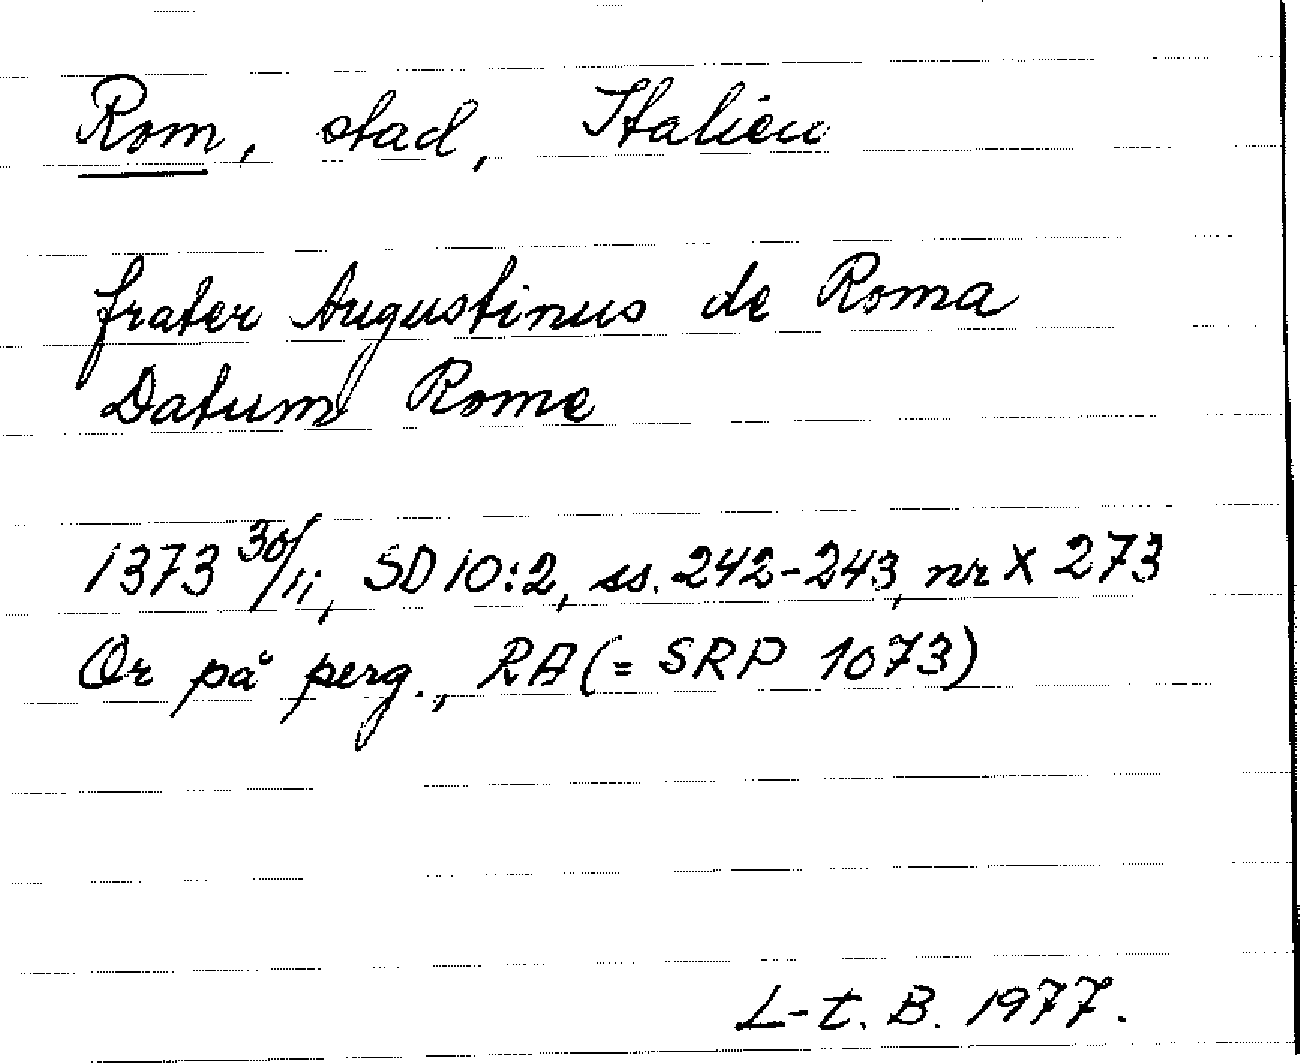 Rom, stad, Italien
frater Augustinus de Roma
Datum Rome
1373 30/11, SD 10:2, ss. 242-243, nr X 273
Or på perg., RA (= SRP 1073)
L-t. B. 1977.